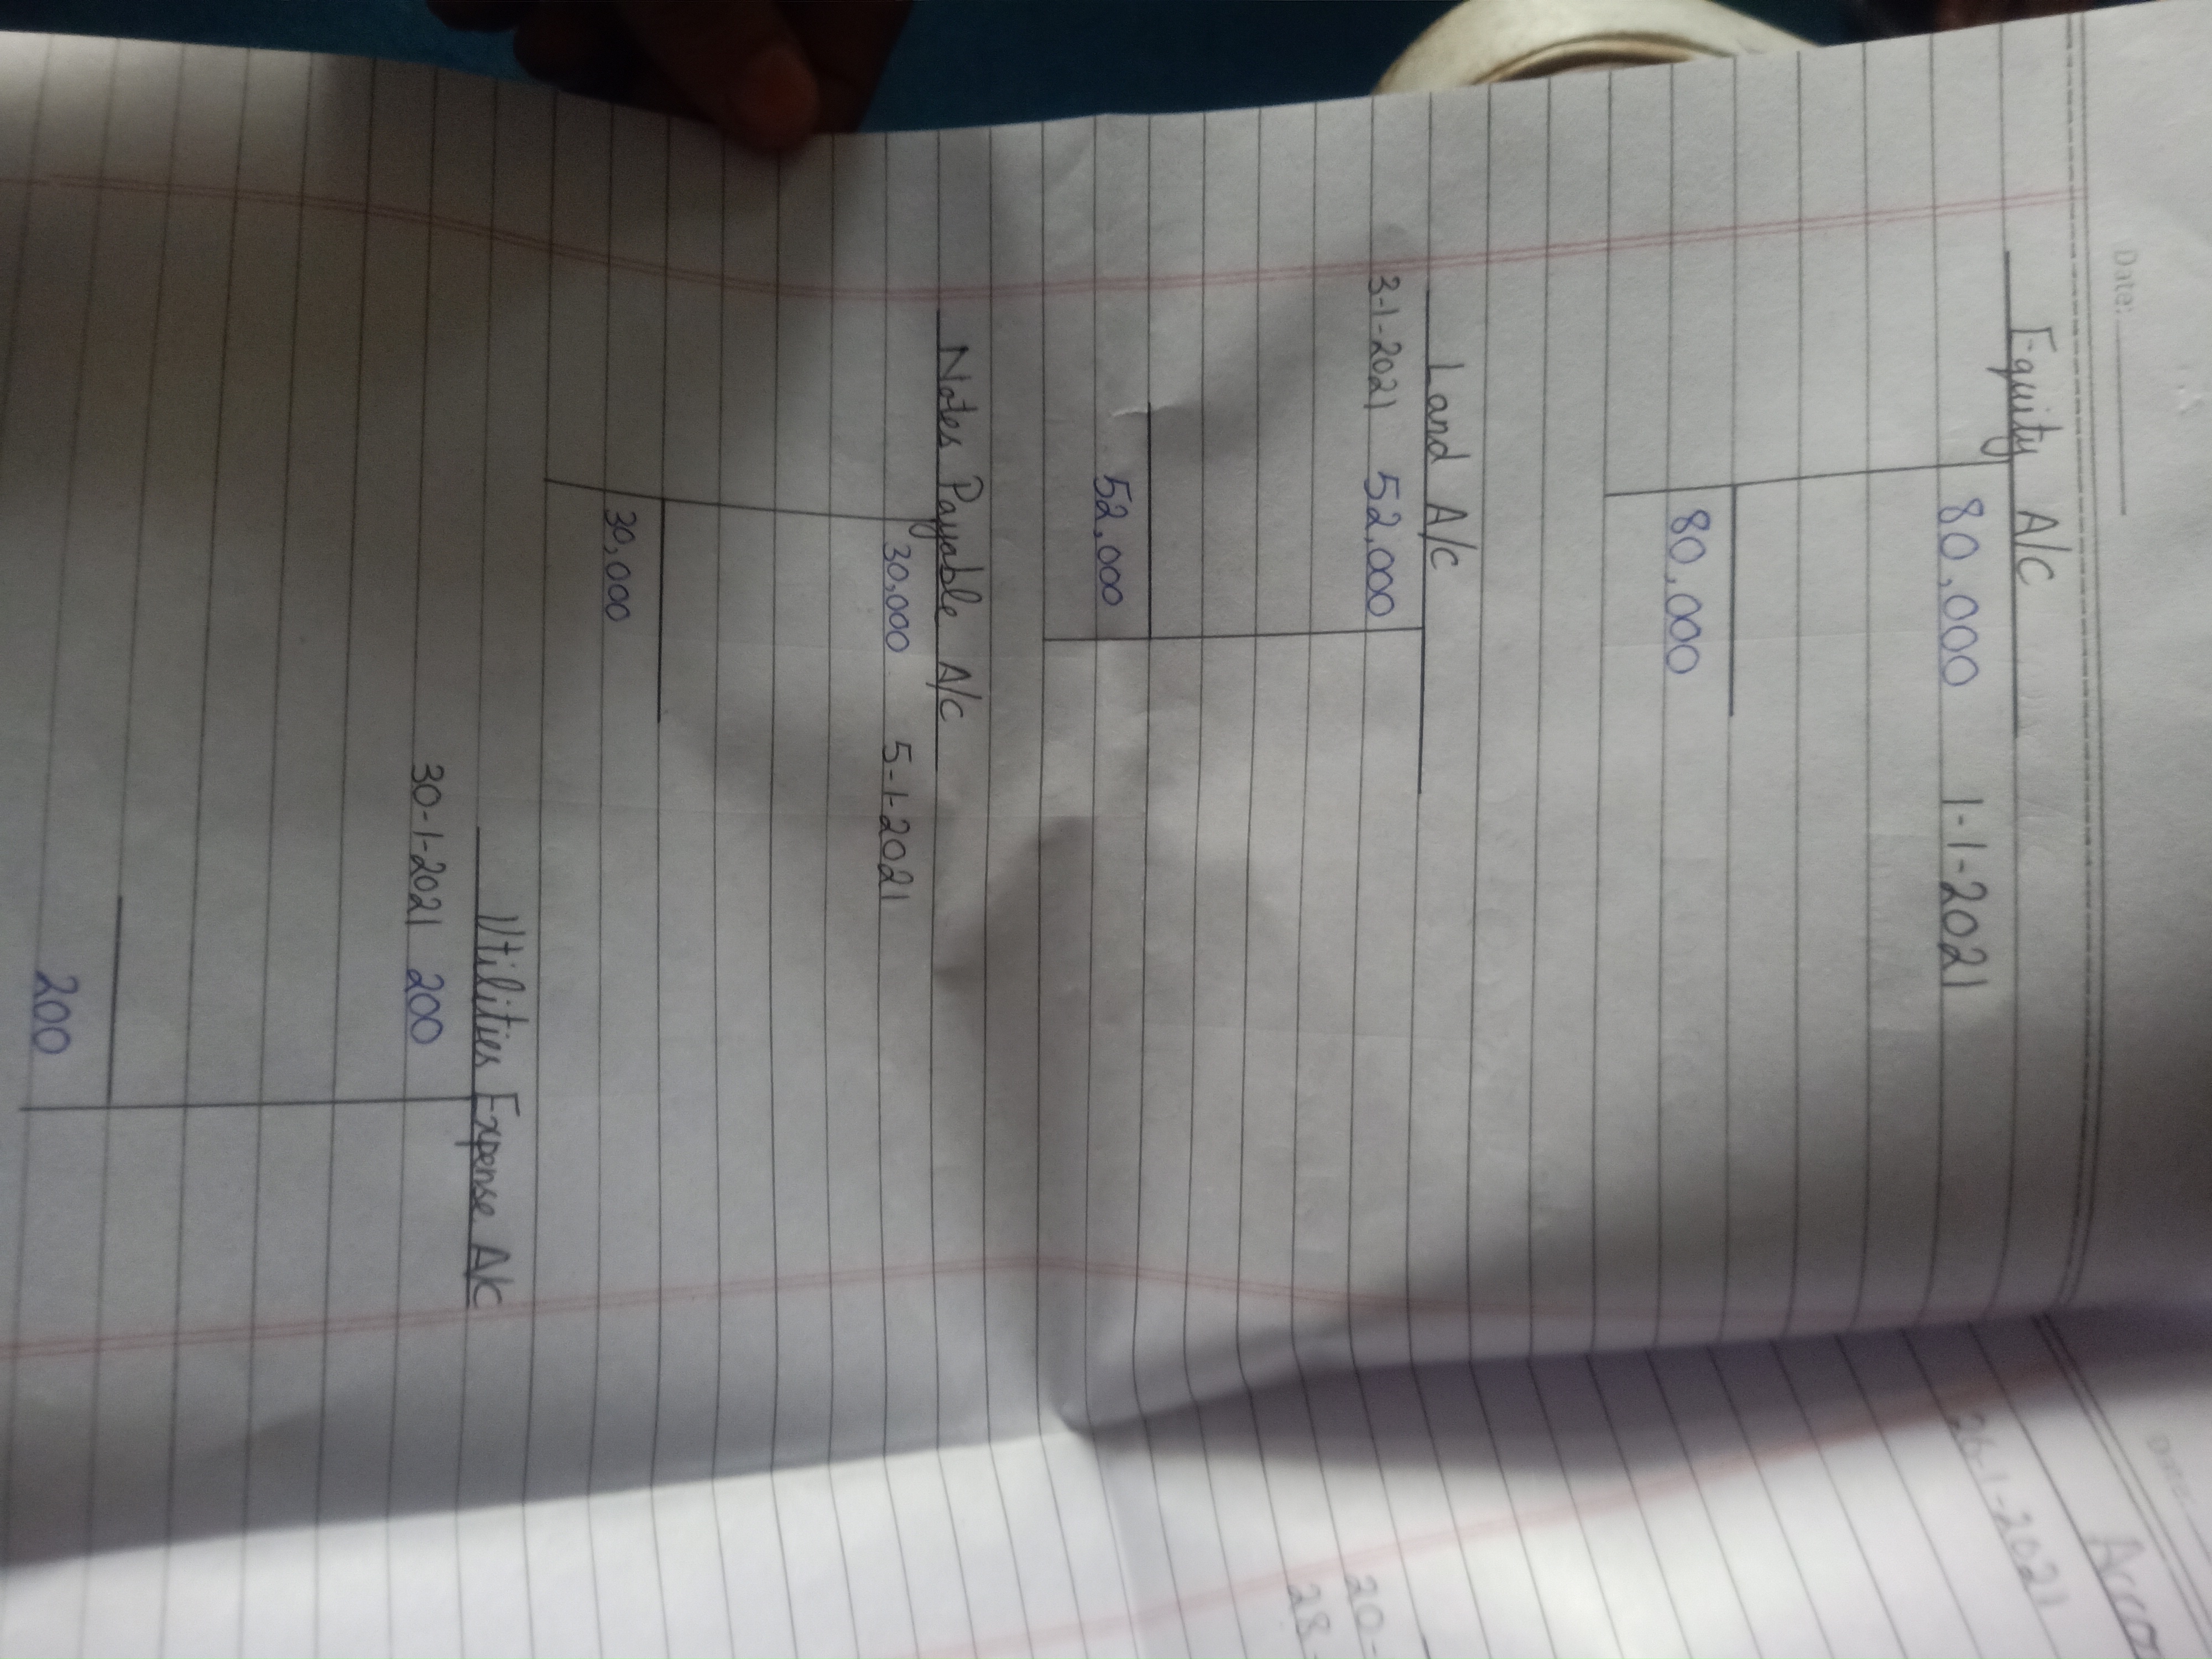 Date:
Equity A/C
80,000 1-1-2021
80,000
Land A/C
3-1-2021 52,000
52,000
Notes Payable A/C
30,000 5-1-2021
30,000
Utilities Expense A/C
30-1-2021 200
200
Date:
26-1-2021
20-
28-